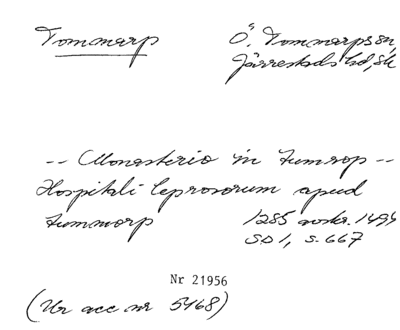 Tommarp
Ö. Tommarps sn,
Järrestads hd, Sk
-- Monasterio in Tumrop --
Hospitali leprosorum apud
Tummorp
1285 avskr. 1494
SD 1, s. 667
Nr 21956
(Ur acc nr 5468)